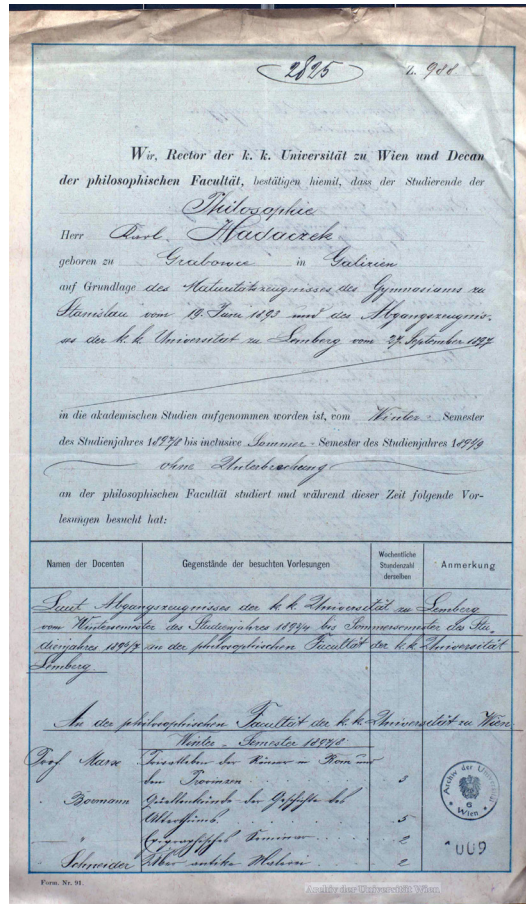 2825 Z. 988
Wir, Rector der k. k. Universität zu Wien und Decan
der philosophischen Facultät, bestätigen hiemit, dass der Studierende der
Philosophie
Herr Karl Hadaczek
geboren zu Grabowce in Galizien
auf Grundlage des Maturitätszeugnisses des Gymnasiums zu
Stanislau vom 19. Juni 1893 und des Abgangszeugnis-
ses der k. k. Universität zu Lemberg vom 27. September 1897
in die akademischen Studien aufgenommen worden ist, vom Winter - Semester
des Studienjahres 1897/8 bis inclusive Sommer - Semester des Studienjahres 1898/9
ohne Unterbrechung
an der philosophischen Facultät studiert und während dieser Zeit folgende Vor-
lesungen besucht hat:
Namen der Docenten Gegenstände der besuchten Vorlesungen Wochentliche Stundenzahl derselben Anmerkung
Laut Abgangszeugnisses der k. k. Universität zu Lemberg
vom Wintersemester des Studienjahres 1893/4 bis Sommersemester des Stu-
dienjahres 1896/7 an der philosophischen Facultät der k. k. Universität
Lemberg.
An der philosophischen Facultät der k. k. Universität zu Wien
Winter - Semester 1897/8
Prof Marx Privatleben der Römer in Rom und
den Provinzen 3
Bormann Quellenkunde der Geschichte des
Alterthums 5
" Epigraphisches Seminar 2
Schneider Über antike Malerei 2
Archiv der Universität Wien
Form. Nr. 91.
Archiv der Universität Wien